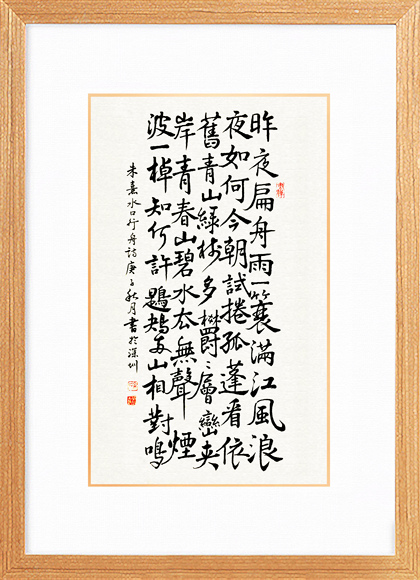 昨夜扁舟雨一簑滿江風浪
夜如何今朝試捲孤蓬看依
舊青山綠樹多鬱〻層巒夾
岸青春山碧水去無聲煙
波一棹知何許鶗鴂兩山相對鳴
朱熹水口行舟詩庚子秋月書於深圳